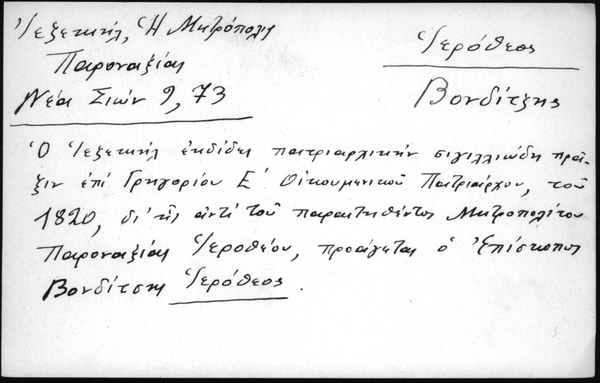 Ἰεζεκιήλ, Ἡ Μητρόπολη
Παροναξίας
Νέα Σιών 9, 73
Ἱερόθεος
Βονδίτζης
Ὁ Ἰεζεκιήλ ἐκδίδει πατριαρχικήν σιγιλλιώδη πρᾶ-
ξιν ἐπί Γρηγορίου Ε΄ Οἰκουμενικοῦ Πατριάρχου, τοῦ
1820, δι' ἧς ἀντί τοῦ παραιτηθέντος Μητροπολίτου
Παροναξίας Ἱεροθέου, προάγεται ὁ Ἐπίσκοπος
Βονδίτσης Ἱερόθεος.